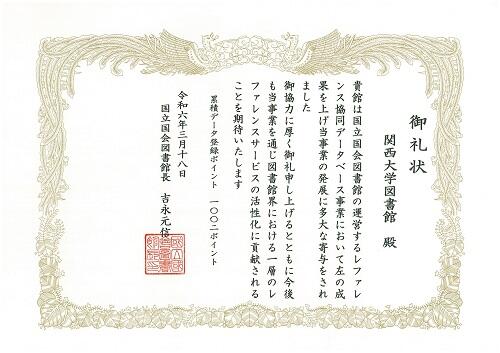 御礼状
関西大学図書館 殿
貴館は国立国会図書館の運営するレファレ
ンス協同データベース事業において左の成
果を上げ当事業の発展に多大な寄与をされ
ました
御協力に厚く御礼申し上げるとともに今後
も当事業を通じ図書館界における一層のレ
ファレンスサービスの活性化に貢献される
ことを期待いたします
累積データ登録ポイント 一〇〇二ポイント
令和六年三月十八日
国立国会図書館長 吉永元信